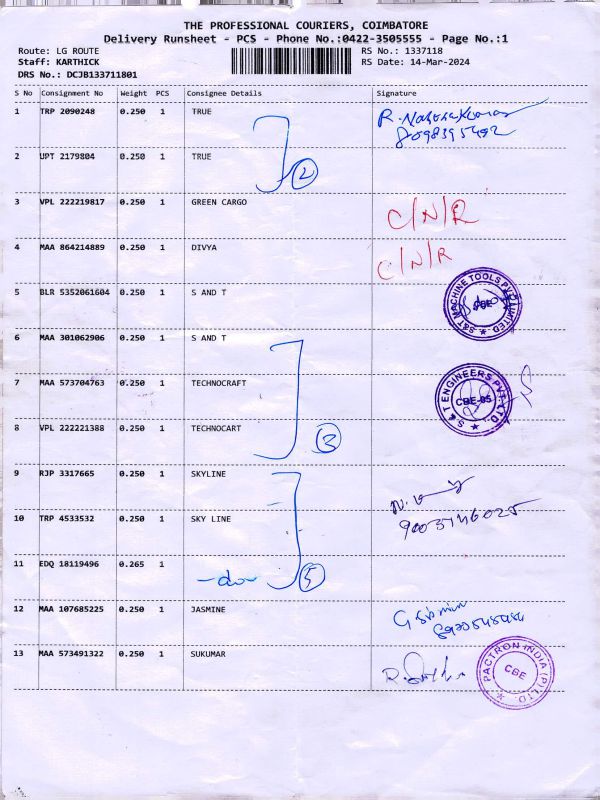 THE PROFESSIONAL COURIERS, COIMBATORE
Delivery Runsheet - PCS - Phone No.:0422-3505555 - Page No.:1
Route: LG ROUTE RS No.: 1337118
Staff: KARTHICK RS Date: 14-Mar-2024
DRS No.: DCJB133711801
S No Consignment No Weight PCS Consignee Details Signature
1 TRP 2090248 0.250 1 TRUE
2 UPT 2179804 0.250 1 TRUE
2
3 VPL 222219817 0.250 1 GREEN CARGO C/N/R
4 MAA 864214889 0.250 1 DIVYA C/N/R
5 BLR 5352061604 0.250 1 S AND T
S&T MACHINE TOOLS PVT LIMITED
CBE
6 MAA 301062906 0.250 1 S AND T
7 MAA 573704763 0.250 1 TECHNOCRAFT
S & T ENGINEERS PVT. LTD.
CBE-05
8 VPL 222221388 0.250 1 TECHNOCART
3
9 RJP 3317665 0.250 1 SKYLINE
10 TRP 4533532 0.250 1 SKY LINE
11 EDQ 18119496 0.265 1
5
12 MAA 107685225 0.250 1 JASMINE
13 MAA 573491322 0.250 1 SUKUMAR
PACTRON INDIA (P) LTD.
CBE